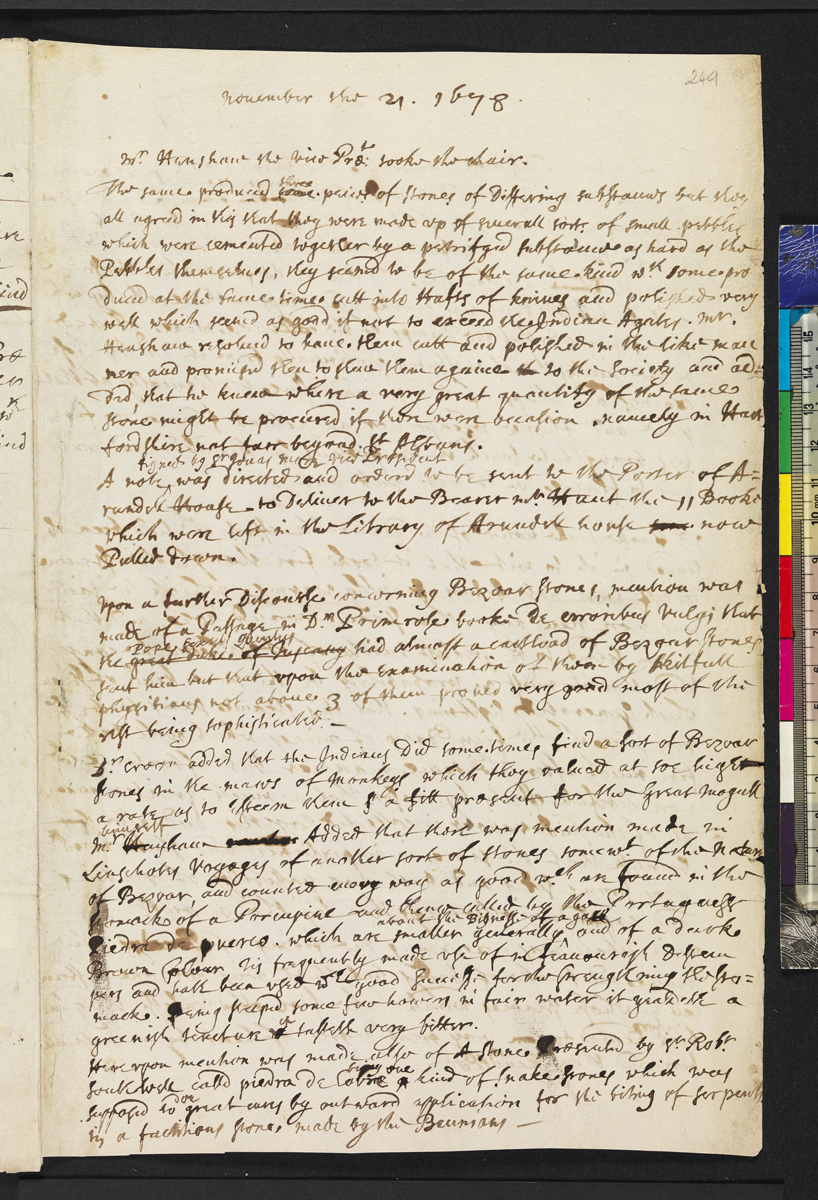 249
november the 21. 1678.
Mr. Henshaw the vice Præ:t tooke the chair.
The same produced three peices of stones of Differing substances but they
all agreed in this that they were made up of severall sorts of small pebbles
which were cemented together by a petrifyed substance as hard as the
Pebbles themselves, they seemd to be of the same kind wth some pro
duced at the same time cutt into Hafts of knives and polished very
well which seemd as good if not to exceed the Indian Agates. mr.
Henshaw resolued to haue them cutt and polished in the like man
ner and promised then to shew them againe to the Society and ad=
ded, that he knew where a very great quantity of the same
stone might be procured if there were occasion, namely in Hart
fordshire not farr beyond St Albans.
signed by Sr Jonas more vice President
A note was directed and orderd to be sent to the Porter of A=
rundell House to Deliver to the Bearer mr. Hunt the 11 Books
which were left in the Library of Arundell house now
Pulled down.
Upon a further Discourse concerning Bezoar stones, mention was
made of a Passage in Dr. Primrose booke De erroribus vulgi that
Pope
the great Duke of Tuscany had almost a cartload of Bezoar stones
sent him but that upon the examination of them by skilfull
physitians not above 3 of them proved very good most of the
rest being sophisticated. —
Dr. croon added that the Indians Did sometimes find a sort of Bezoar
stones in the maws of monkeys which they valued at soe high
a rate as to esteem them a fitt present for the great mogull
himself
Mr. Henshaw Added that there was mention made in
Linschotes voyages of another sort of stones somewt of the Nature
of Bezoar, and counted every way as good wch are found in the
stomack of a Porcupine and thence called by the Portuguess
about the Bignesse of a gall
Piedra de puerco. which are smaller generally and of a darke
Brown colour tis frequently made use of in feauourish Distem
pers and hath been used wth good success for the strengthning the sto=
mack. Being steeped some few howers in fair water it yeildeth a
greenish tincture tasteth very bitter.
Hereupon mention was made also of A stone Presented by Sr Robt.
Southwell calld piedra de Cobra being one kind of snake stones which was
supposed to doe great cures by outward application for the biting of serpents
is a factitious stone made by the